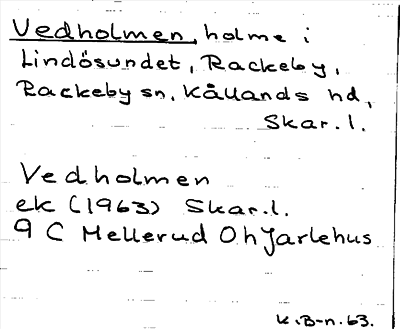 Vedholmen, holme i
Lindösundet, Rackeby,
Rackeby sn, Kållands hd,
Skar. l.
Vedholmen
ek (1963) Skar. l.
9 C Mellerud Ö h Jarlehus
K.B-n. 63.